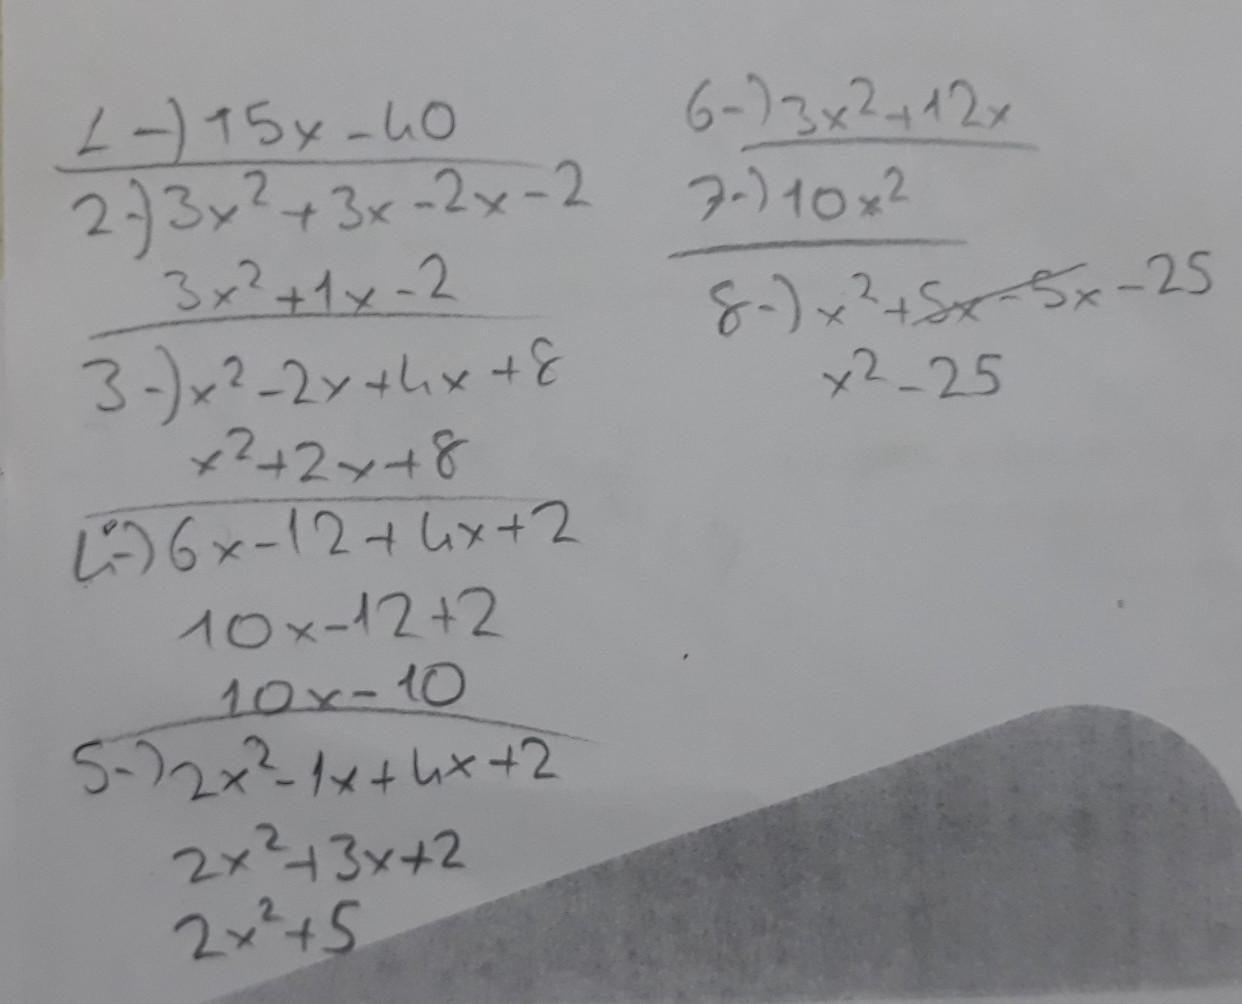 1-) 15x-40
2-) 3x²+3x-2x-2
3x²+1x-2
3-) x²-2x+4x+8
x²+2x+8
4-) 6x-12+4x+2
10x-12+2
10x-10
5-) 2x²-1x+4x+2
2x²+3x+2
2x²+5
6-) 3x²+12x
7-) 10x²
8-) x²+5x-5x-25
x²-25